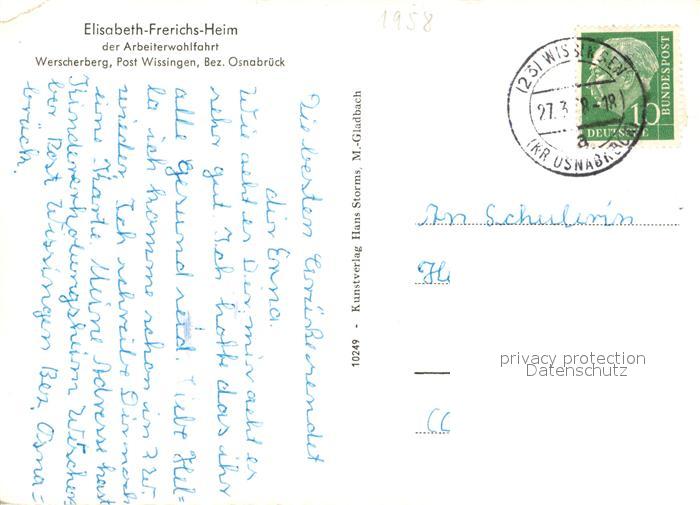 1958
Elisabeth-Frerichs-Heim
der Arbeiterwohlfahrt
Werscherberg, Post Wissingen, Bez. Osnabrück
Die besten Grüße sendet
dir Erina.
Wie geht es Dir, mir geht es
sehr gut. Ich hoffe das ihr
alle gesund seid. Liebe Hel=
la ich komme schon in 2 W.
wieder. Ich schreibe Dir noch
eine Karte. Meine Adresse hast
Kindererholungsheim Werscher
ber Post Wissingen Bez. Osna=
brück.
10249 - Kunstverlag Hans Storms, M.-Gladbach
(23) WISSINGEN
27.3.58-18
a
(KR OSNABRÜCK)
10
DEUTSCHE
BUNDESPOST
An Schulerin
He
privacy protection
Datenschutz